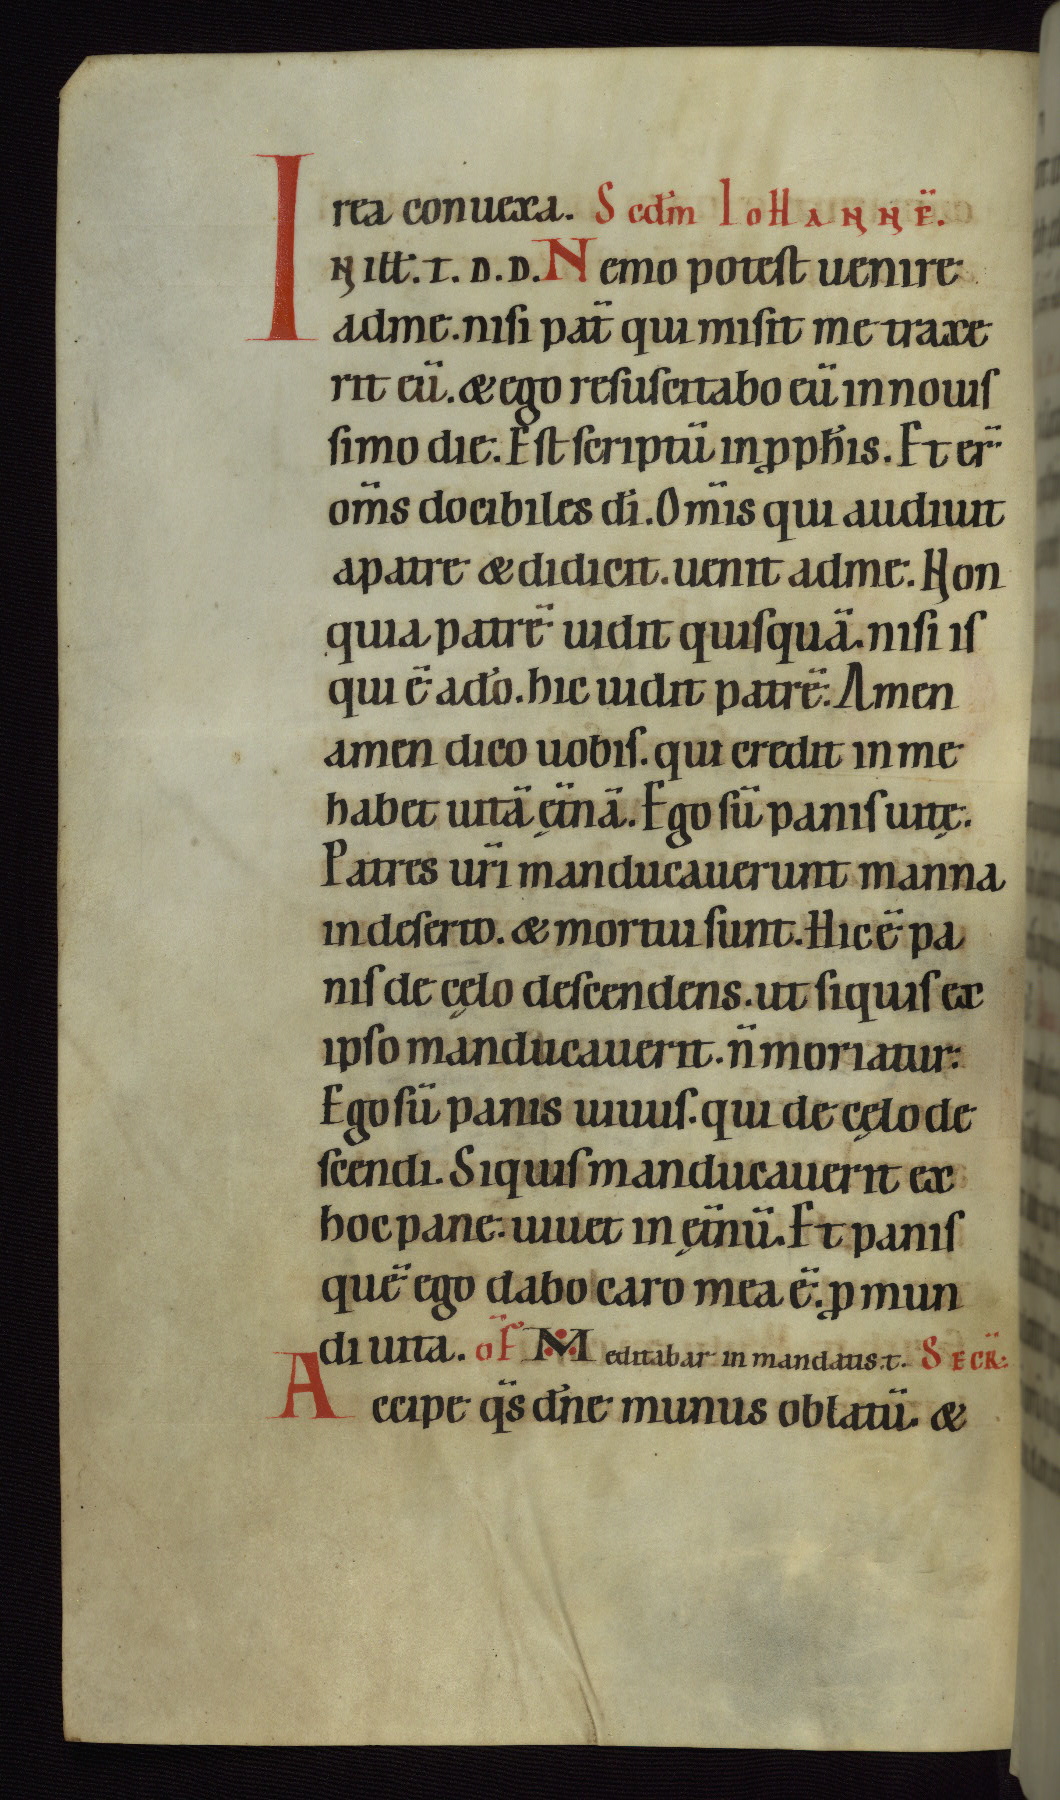 rea conuexa. Scdm IoHANNE.
IN ill̅. T. D. D. Nemo potest uenire
adme. nisi pat̅ qui misit me traxe
rit eu̅. & ego resuscitabo eu̅ innouis
simo die. Est scriptu̅ inpph̅is. Et er̅
om̅s docibiles di̅. Om̅is qui audiuit
apatre & didicit. uenit adme. Non
quia patre̅ uidit quisqua̅. nisi is
qui e̅ ado̅. hic uidit patre̅. Amen
amen dico uobis. qui credit inme
habet uita̅ ęt̅na̅. Ego su̅ panis uitę.
Patres ur̅i manducauerunt manna
indeserto. & mortui sunt. Hic e̅ pa
nis de cęlo descendens. ut siquis ex
ipso manducauerit. n̅ moriatur.
Ego su̅ panis uiuus. qui de cęlo de
scendi. Siquis manducauerit ex
hoc pane. uiuet in ęt̅nu̅. Et panis
que̅ ego dabo caro mea e̅. p mun
di uita. of̅ Meditabar in mandatis. t. SECR̅.
Accipe qs̅ dn̅e munus oblatu̅. &